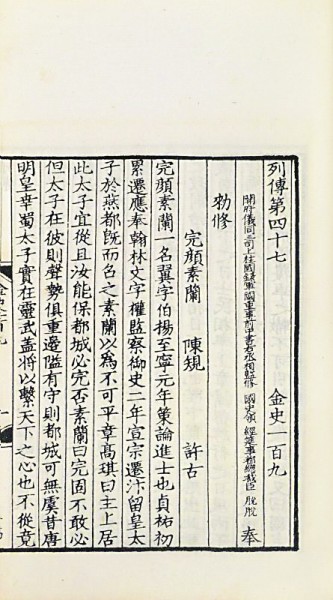 列傳第四十七　金史一百九
開府儀同三司上柱國錄軍國重事前中書右丞相監修國史領經筵事都總裁臣脫脫奉
勑修
完顏素蘭　陳規　許古
完顏素蘭一名翼字伯揚至寧元年策論進士也貞祐初
累遷應奉翰林文字權監察御史二年宣宗遷汴留皇太
子於燕都旣而召之素蘭以為不可平章高琪曰主上居
此太子宜從且汝能保都城必完否素蘭曰完固不敢必
但太子在彼則聲勢俱重邊隘有守則都城可無虞昔唐
明皇幸蜀太子實在靈武蓋將以繫天下之心也不從竟